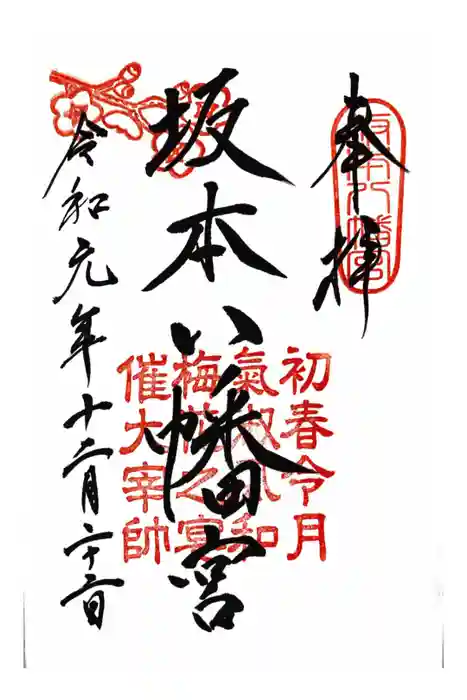 奉拝
坂本八幡宮
初春令月
氣淑風和
梅花之宴
催大宰帥
坂本八幡宮
令和元年十二月二十二日